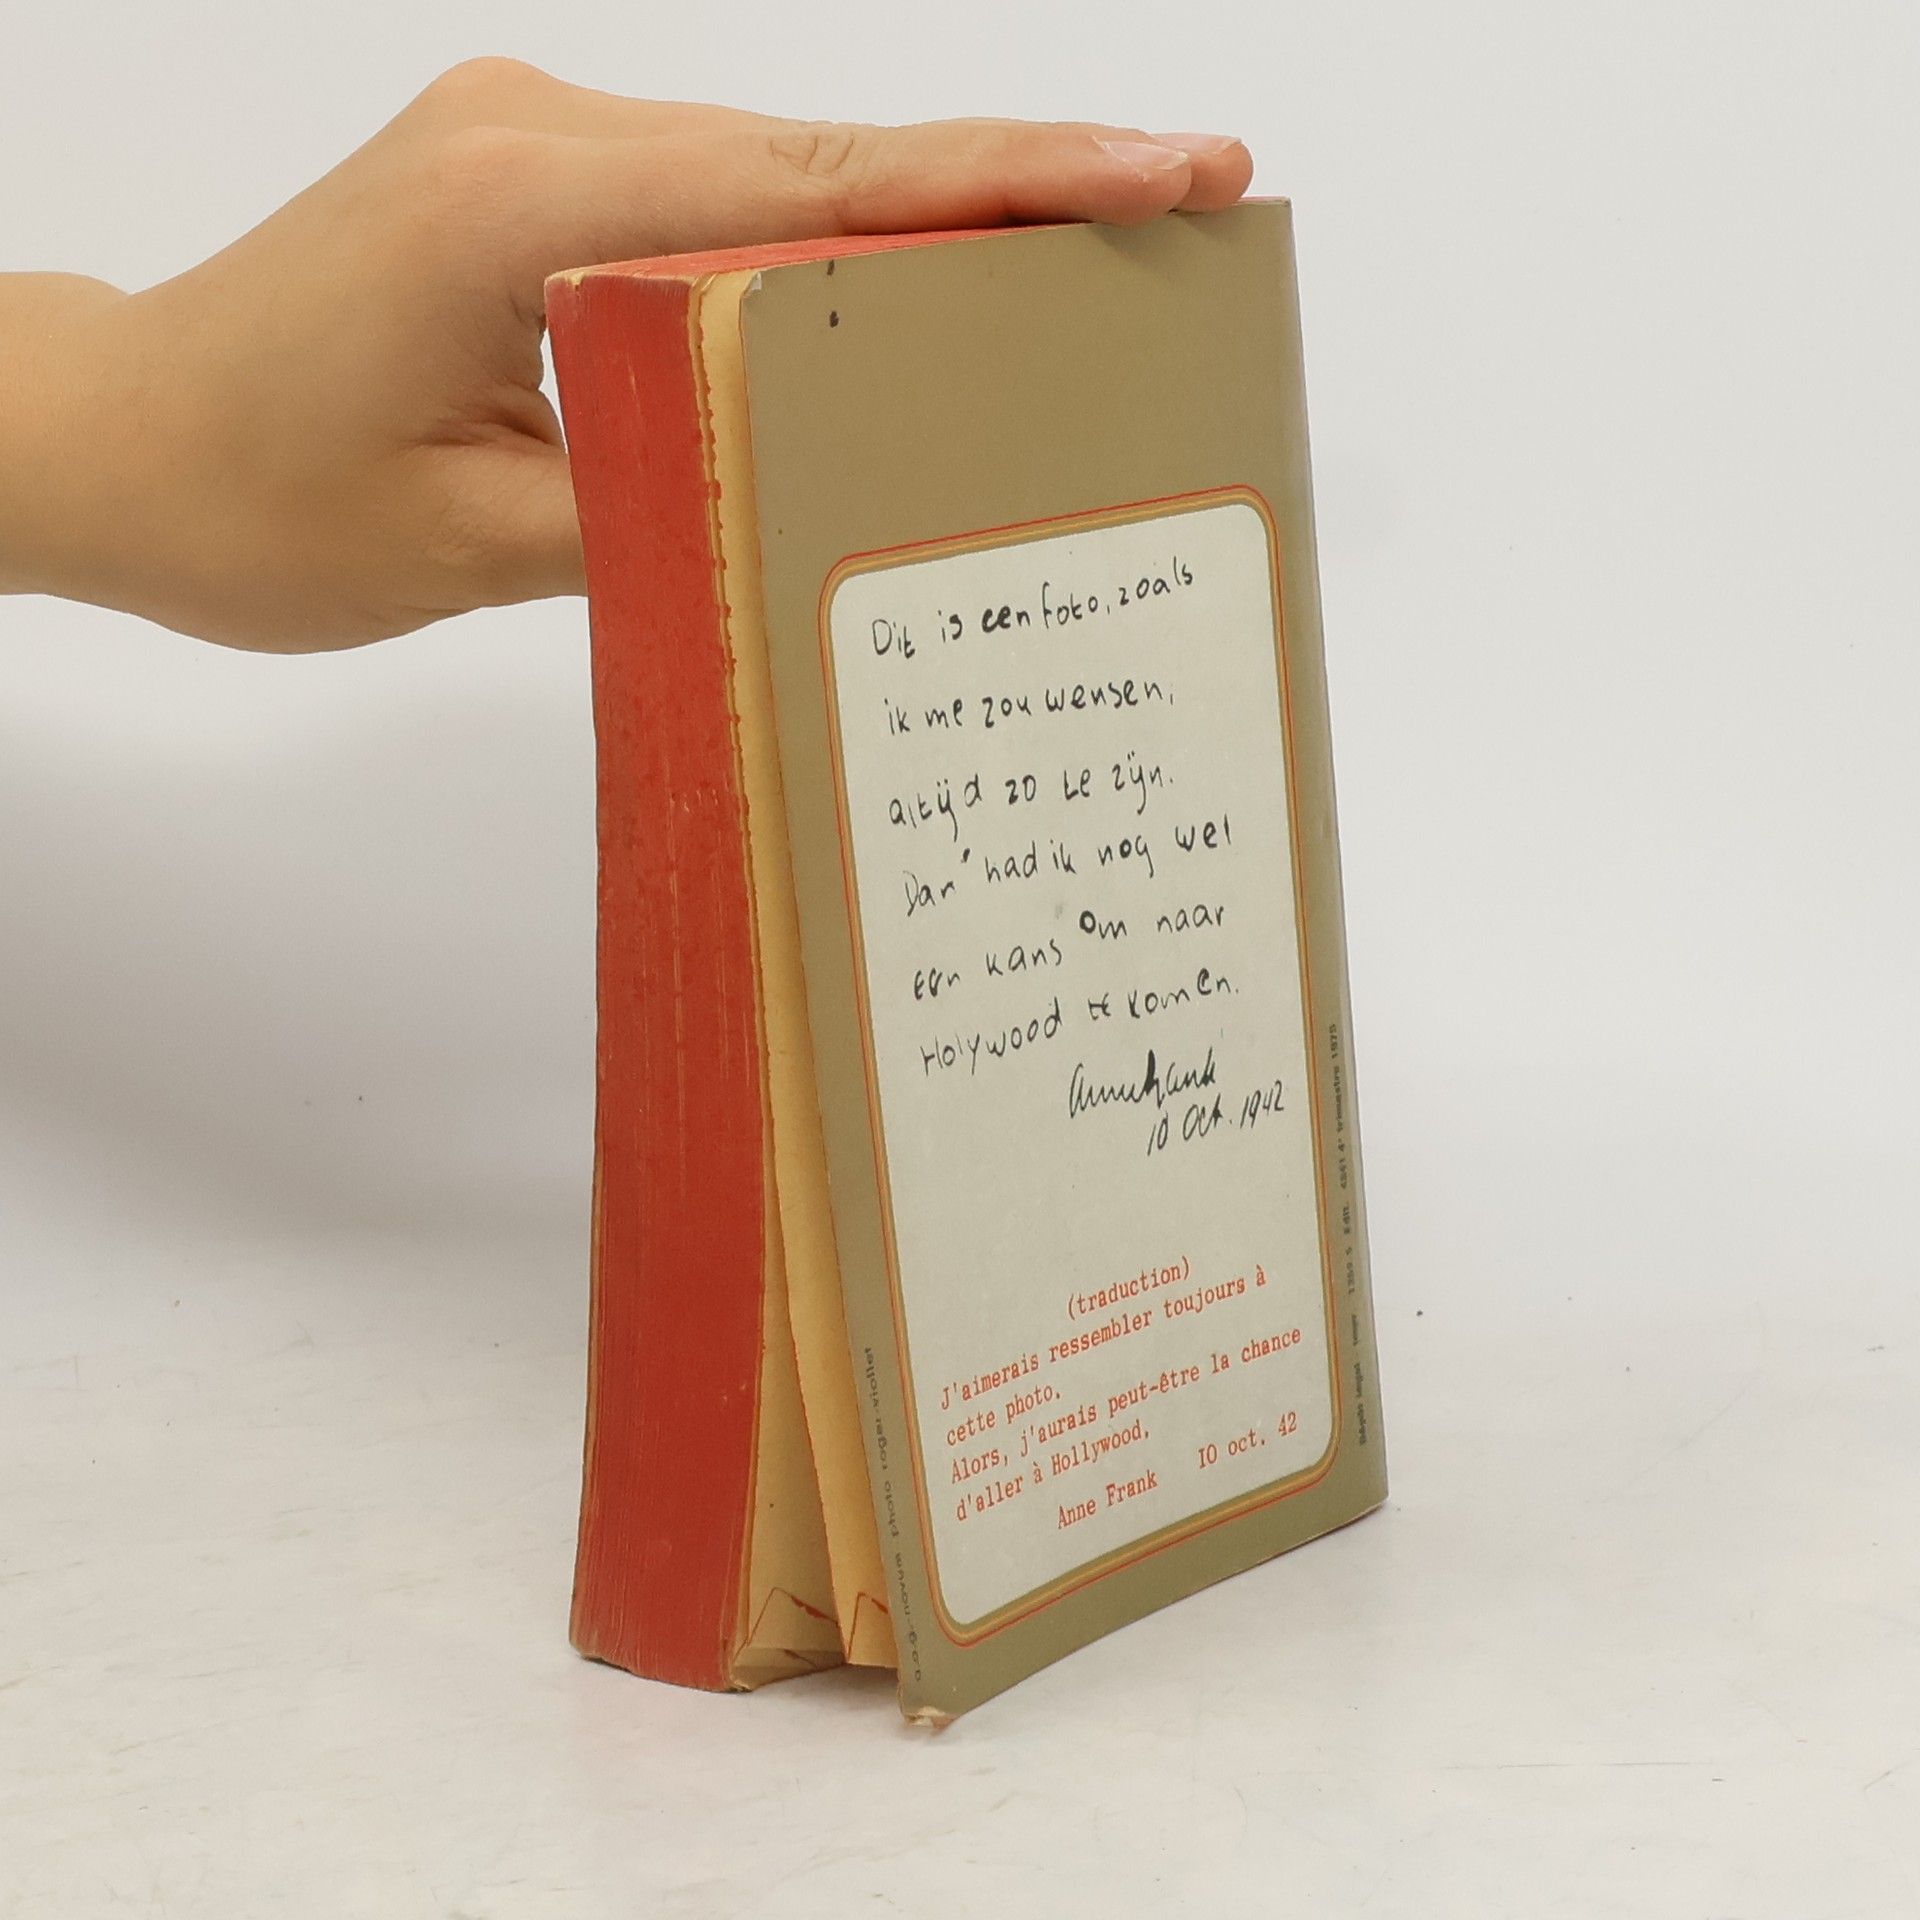 Dit is een foto, zoals
ik me zou wensen,
altijd zo te zijn.
Dan had ik nog wel
een kans om naar
Holywood te komen.
Annefrank
10 Oct. 1942
(traduction)
J'aimerais ressembler toujours à
cette photo.
Alors, j'aurais peut-être la chance
d'aller à Hollywood.
Anne Frank IO oct. 42
photo roger-viollet
Edit. 4541 4e trimestre 1975